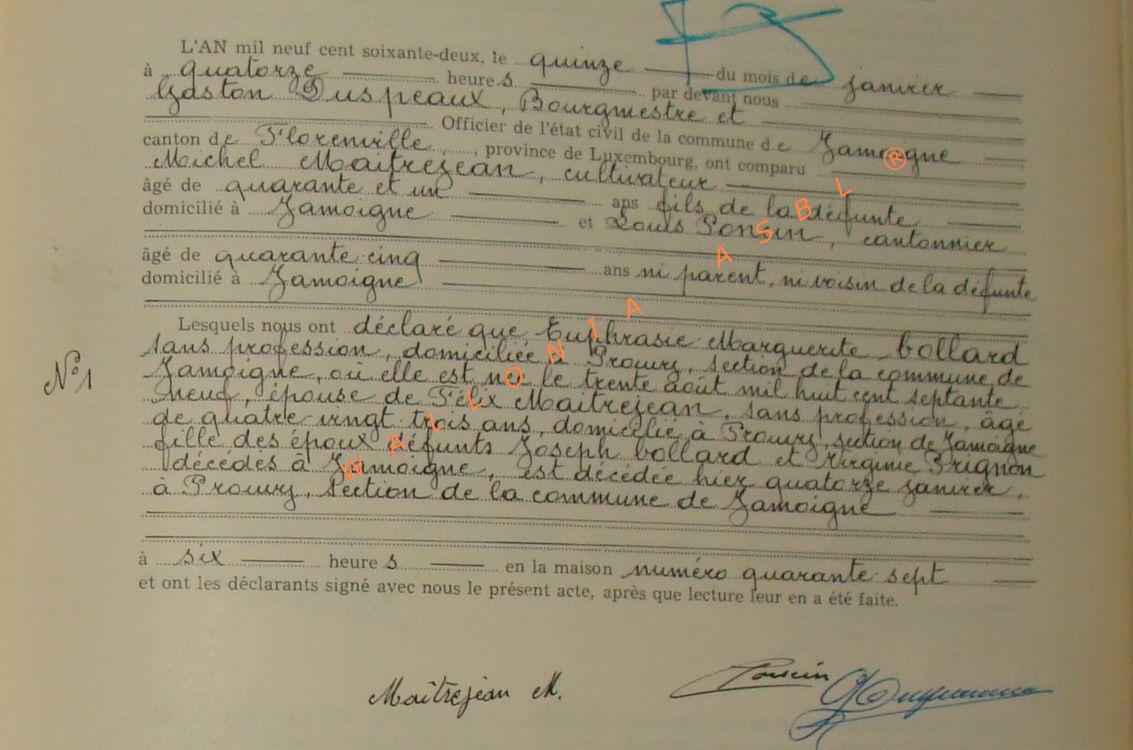 L'AN mil neuf cent soixante-deux, le quinze du mois de janvier
à quatorze heures par devant nous
Gaston Duspeaux, Bourgmestre et
Officier de l'état civil de la commune de Jamoigne
canton de Florenville, province de Luxembourg, ont comparu
Michel Maitrejean, cultivateur
âgé de quarante et un ans fils de la défunte
domicilié à Jamoigne et Louis Ponsin, cantonnier
âgé de quarante-cinq ans ni parent, ni voisin de la défunte
domicilié à Jamoigne
Lesquels nous ont déclaré que Euphrasie-Marguerite Collard
sans profession, domiciliée à Prouvy, section de la commune de
Jamoigne, où elle est née le trente août mil huit cent septante
neuf, épouse de Félix Maitrejean, sans profession, âgé
de quatre-vingt-trois ans, domicilié à Prouvy, section de Jamoigne
fille des époux défunts Joseph Collard et Virginie Prignon
décédés à Jamoigne, est décédée hier quatorze janvier,
à Prouvy, section de la commune de Jamoigne
N° 1
à six heures en la maison numéro quarante-sept
et ont les déclarants signé avec nous le présent acte, après que lecture leur en a été faite.
Maîtrejean M. Ponsin
WALLONIA ASBL ®